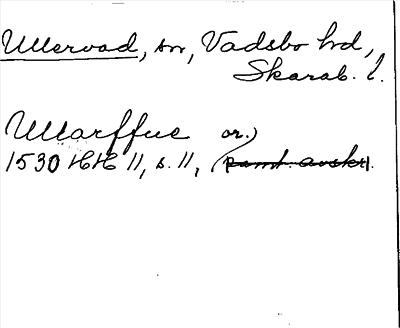 Ullervad, sn, Vadsbo hd,
Skarab. l.
Ullarffue or.)
1530 HH 11, s. 11, (samt. avskr).